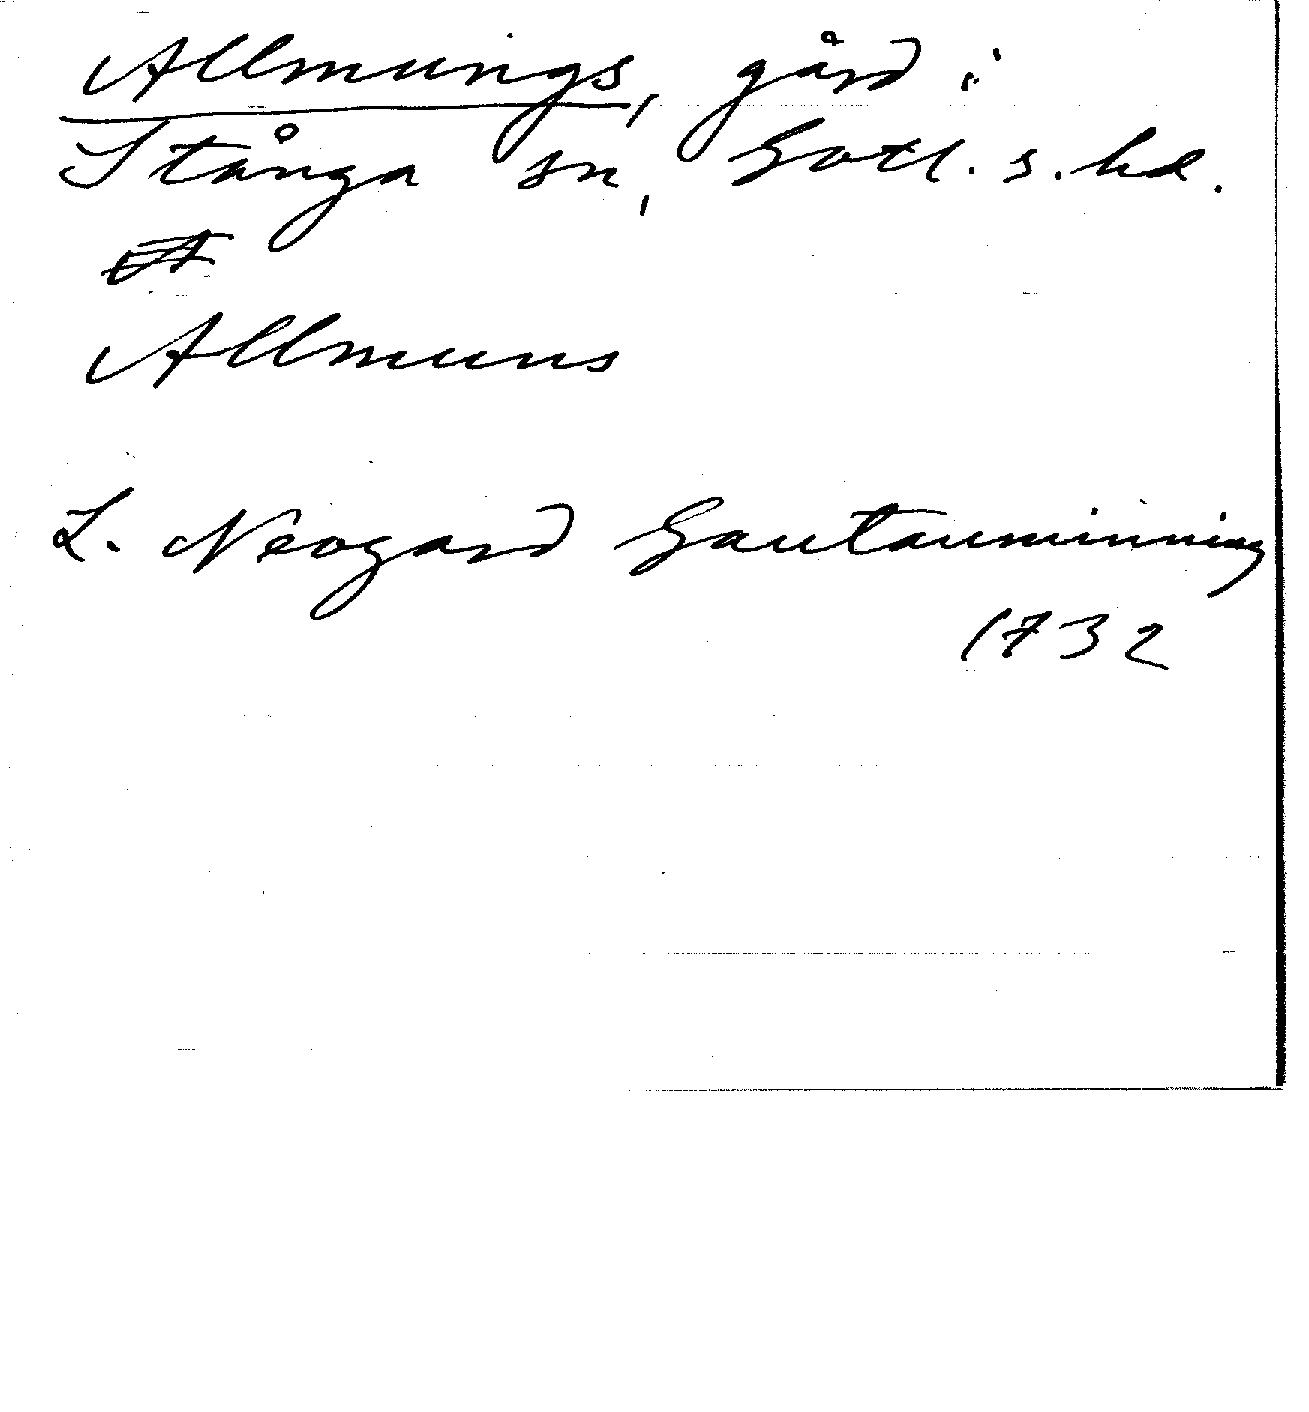 Allmungs, gård i
Stånga sn, Gotl. s. hd.
Allmuns
L. Neogard Gautauminning
1732